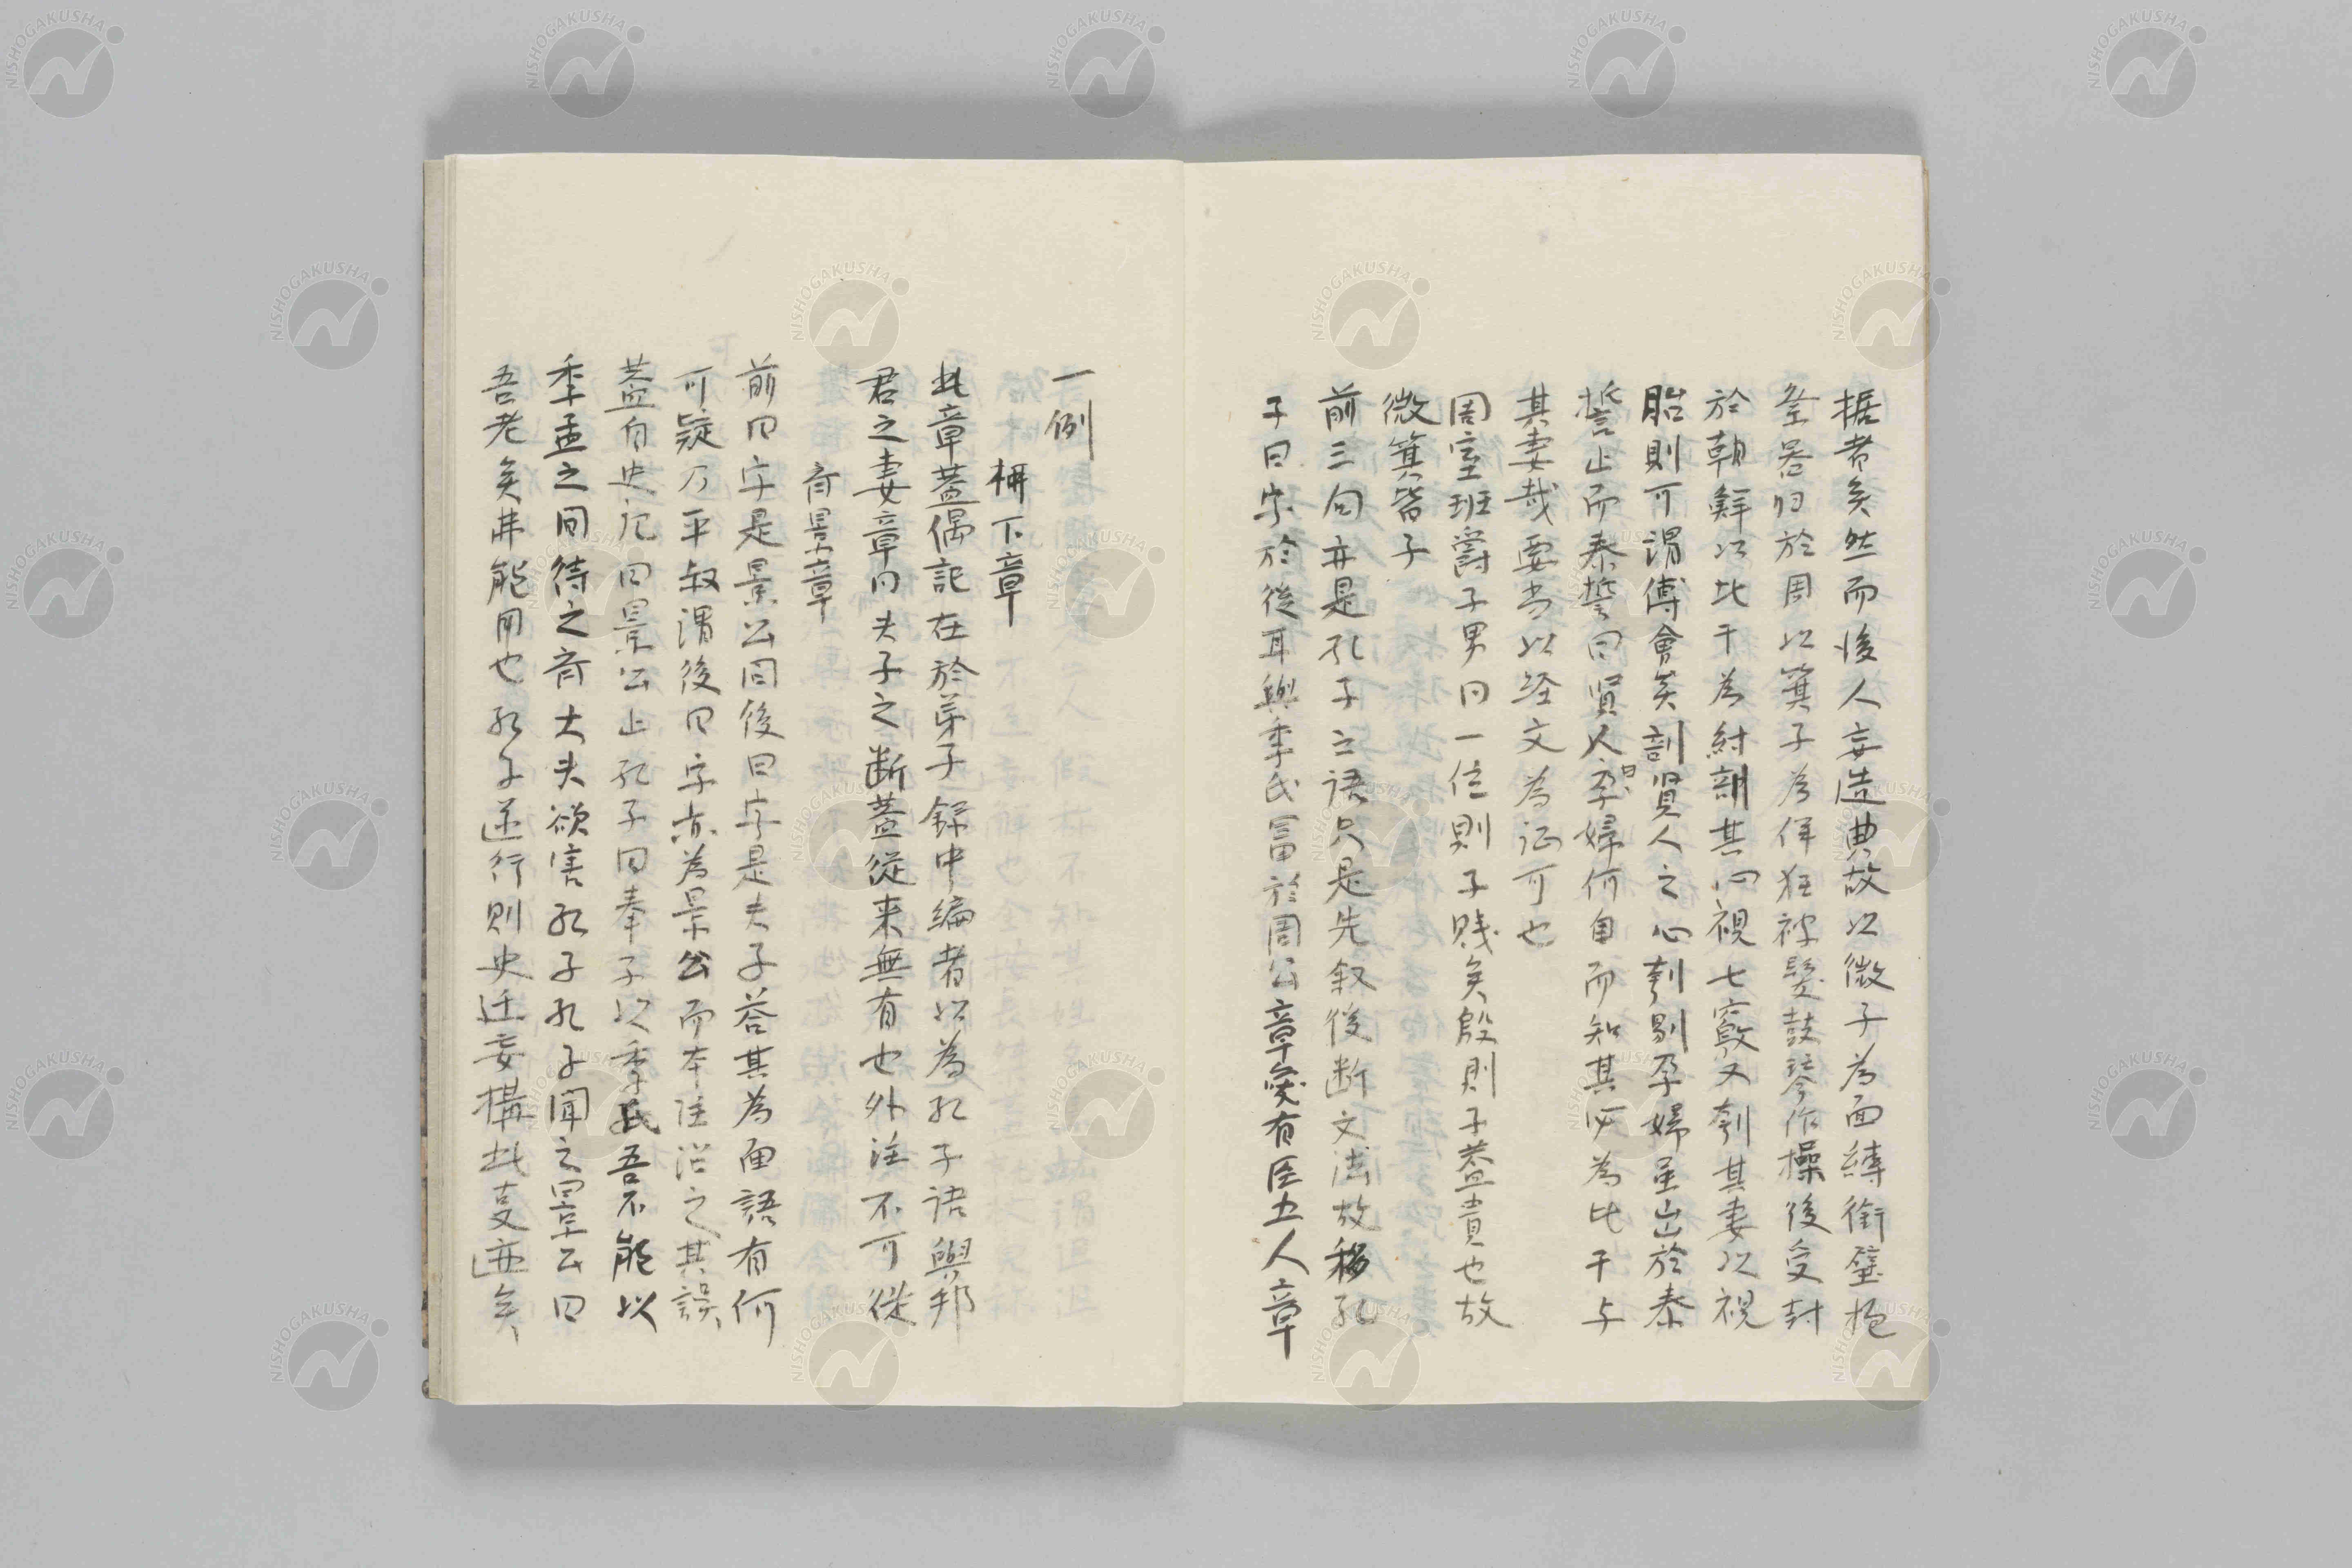 据者矣然而後人妄造典故以微子為面縛銜璧抱
祭器归於周以箕子為佯狂被髮鼓琴作操後受封
於朝鮮以比干為紂剖其心視七竅又刳其妻以視
胎則可謂傅會矣剖賢人之心刳剔孕婦並出於泰
誓止而泰誓曰賢人曰孕婦何自而知其必為比干与
其妻哉要当以経文為证可也
周室班爵子男同一位則子賎矣殷則子蓋貴也故
微箕皆子
前三句亦是孔子之語只是先叙後断文法故移孔
子曰字於後耳與季氏冨於周公章奐有臣五人章
一例
栁下章
此章蓋偶記在於弟子録中編者以為孔子語與邦
君之妻章同夫子之断蓋從来無有也外注不可從
斉景章
前曰字是景公曰後曰字是夫子荅其為面語有何
可疑乃平叙謂後曰字亦為景公而本注沿之其誤
蓋自史记曰景公止孔子曰奉子以季氏吾不能以
季孟之间待之斉大夫欲害孔子孔子聞之景公曰
吾老矣弗能用也孔子遂行則史迁妄構此支迹矣
NISHOGAKUSHA